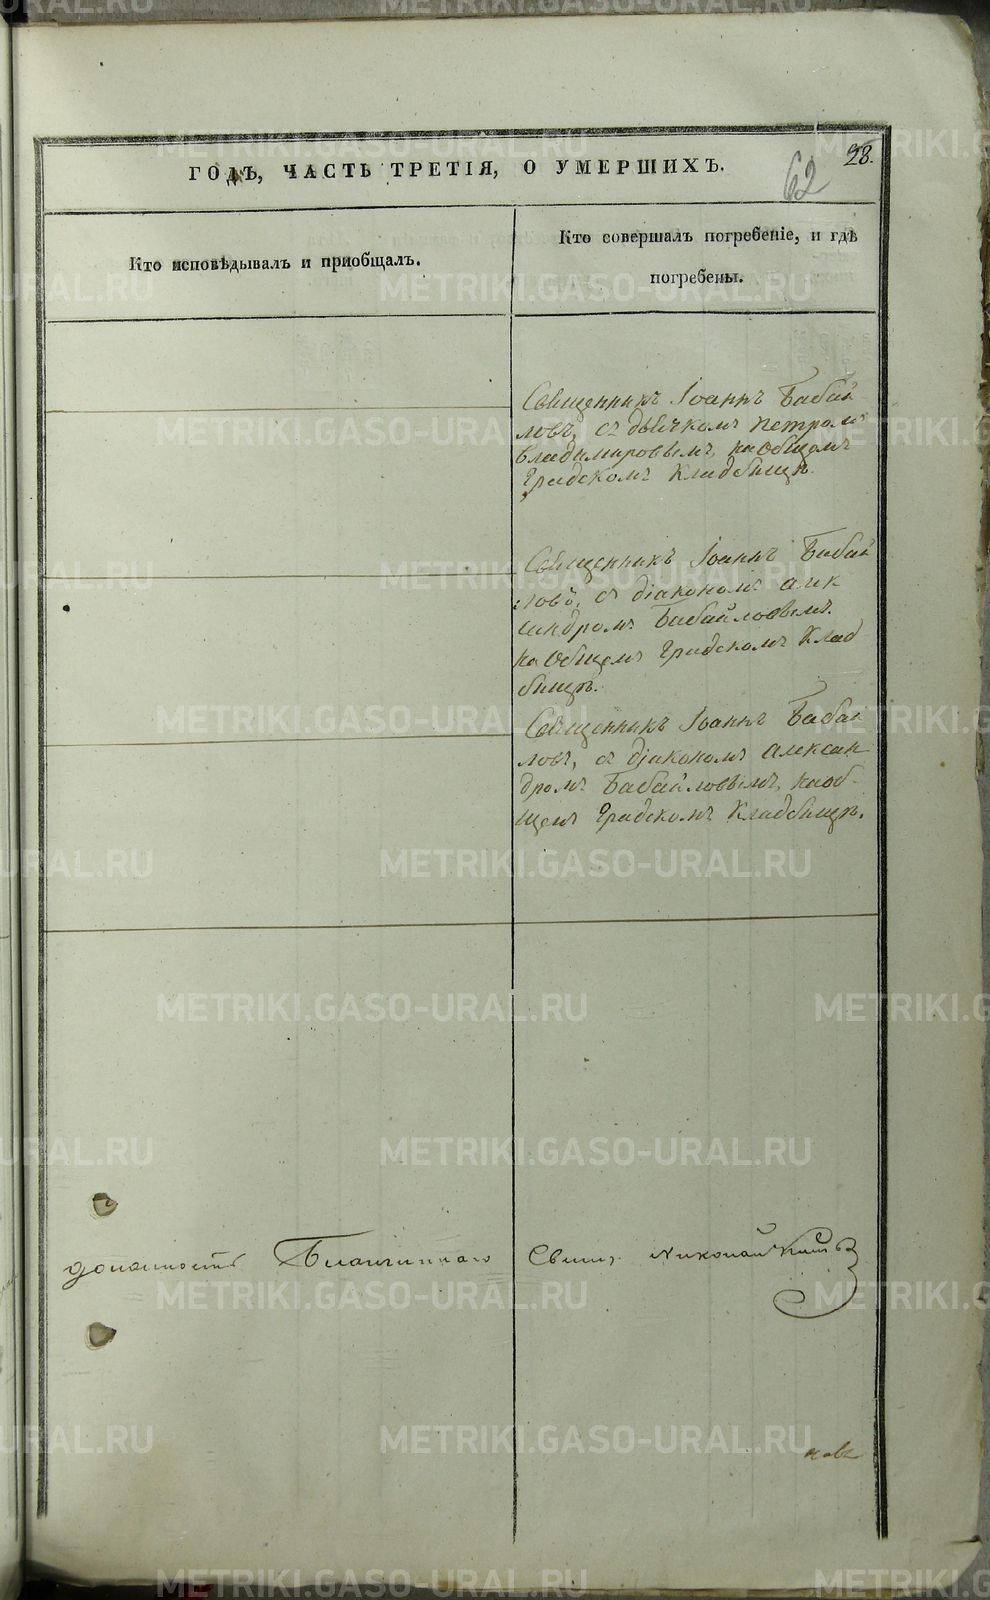 28.
62
ГОДЪ, ЧАСТЬ ТРЕТІЯ, О УМЕРШИХЪ.
Кто исповѣдывалъ и приобщалъ.
Кто совершалъ погребеніе, и гдѣ
погребены.
Священникъ Іоаннъ Бабай
ловъ, съ дьячкомъ Петромъ
Владимировымъ, на Общемъ
Градскомъ Кладбищѣ.
Священникъ Іоаннъ Бабай
ловъ, съ діакономъ Алек
сандромъ Бабайловымъ.
на Общемъ Градскомъ Клад
бищѣ.
Священникъ Іоаннъ Бабай
ловъ, съ діакономъ Алексан
дромъ Бабайловымъ, на об-
щемъ Градскомъ Кладбищѣ.
должность Благочиннаго Свящ. Николай
METRIKI.GASO-URAL.RU